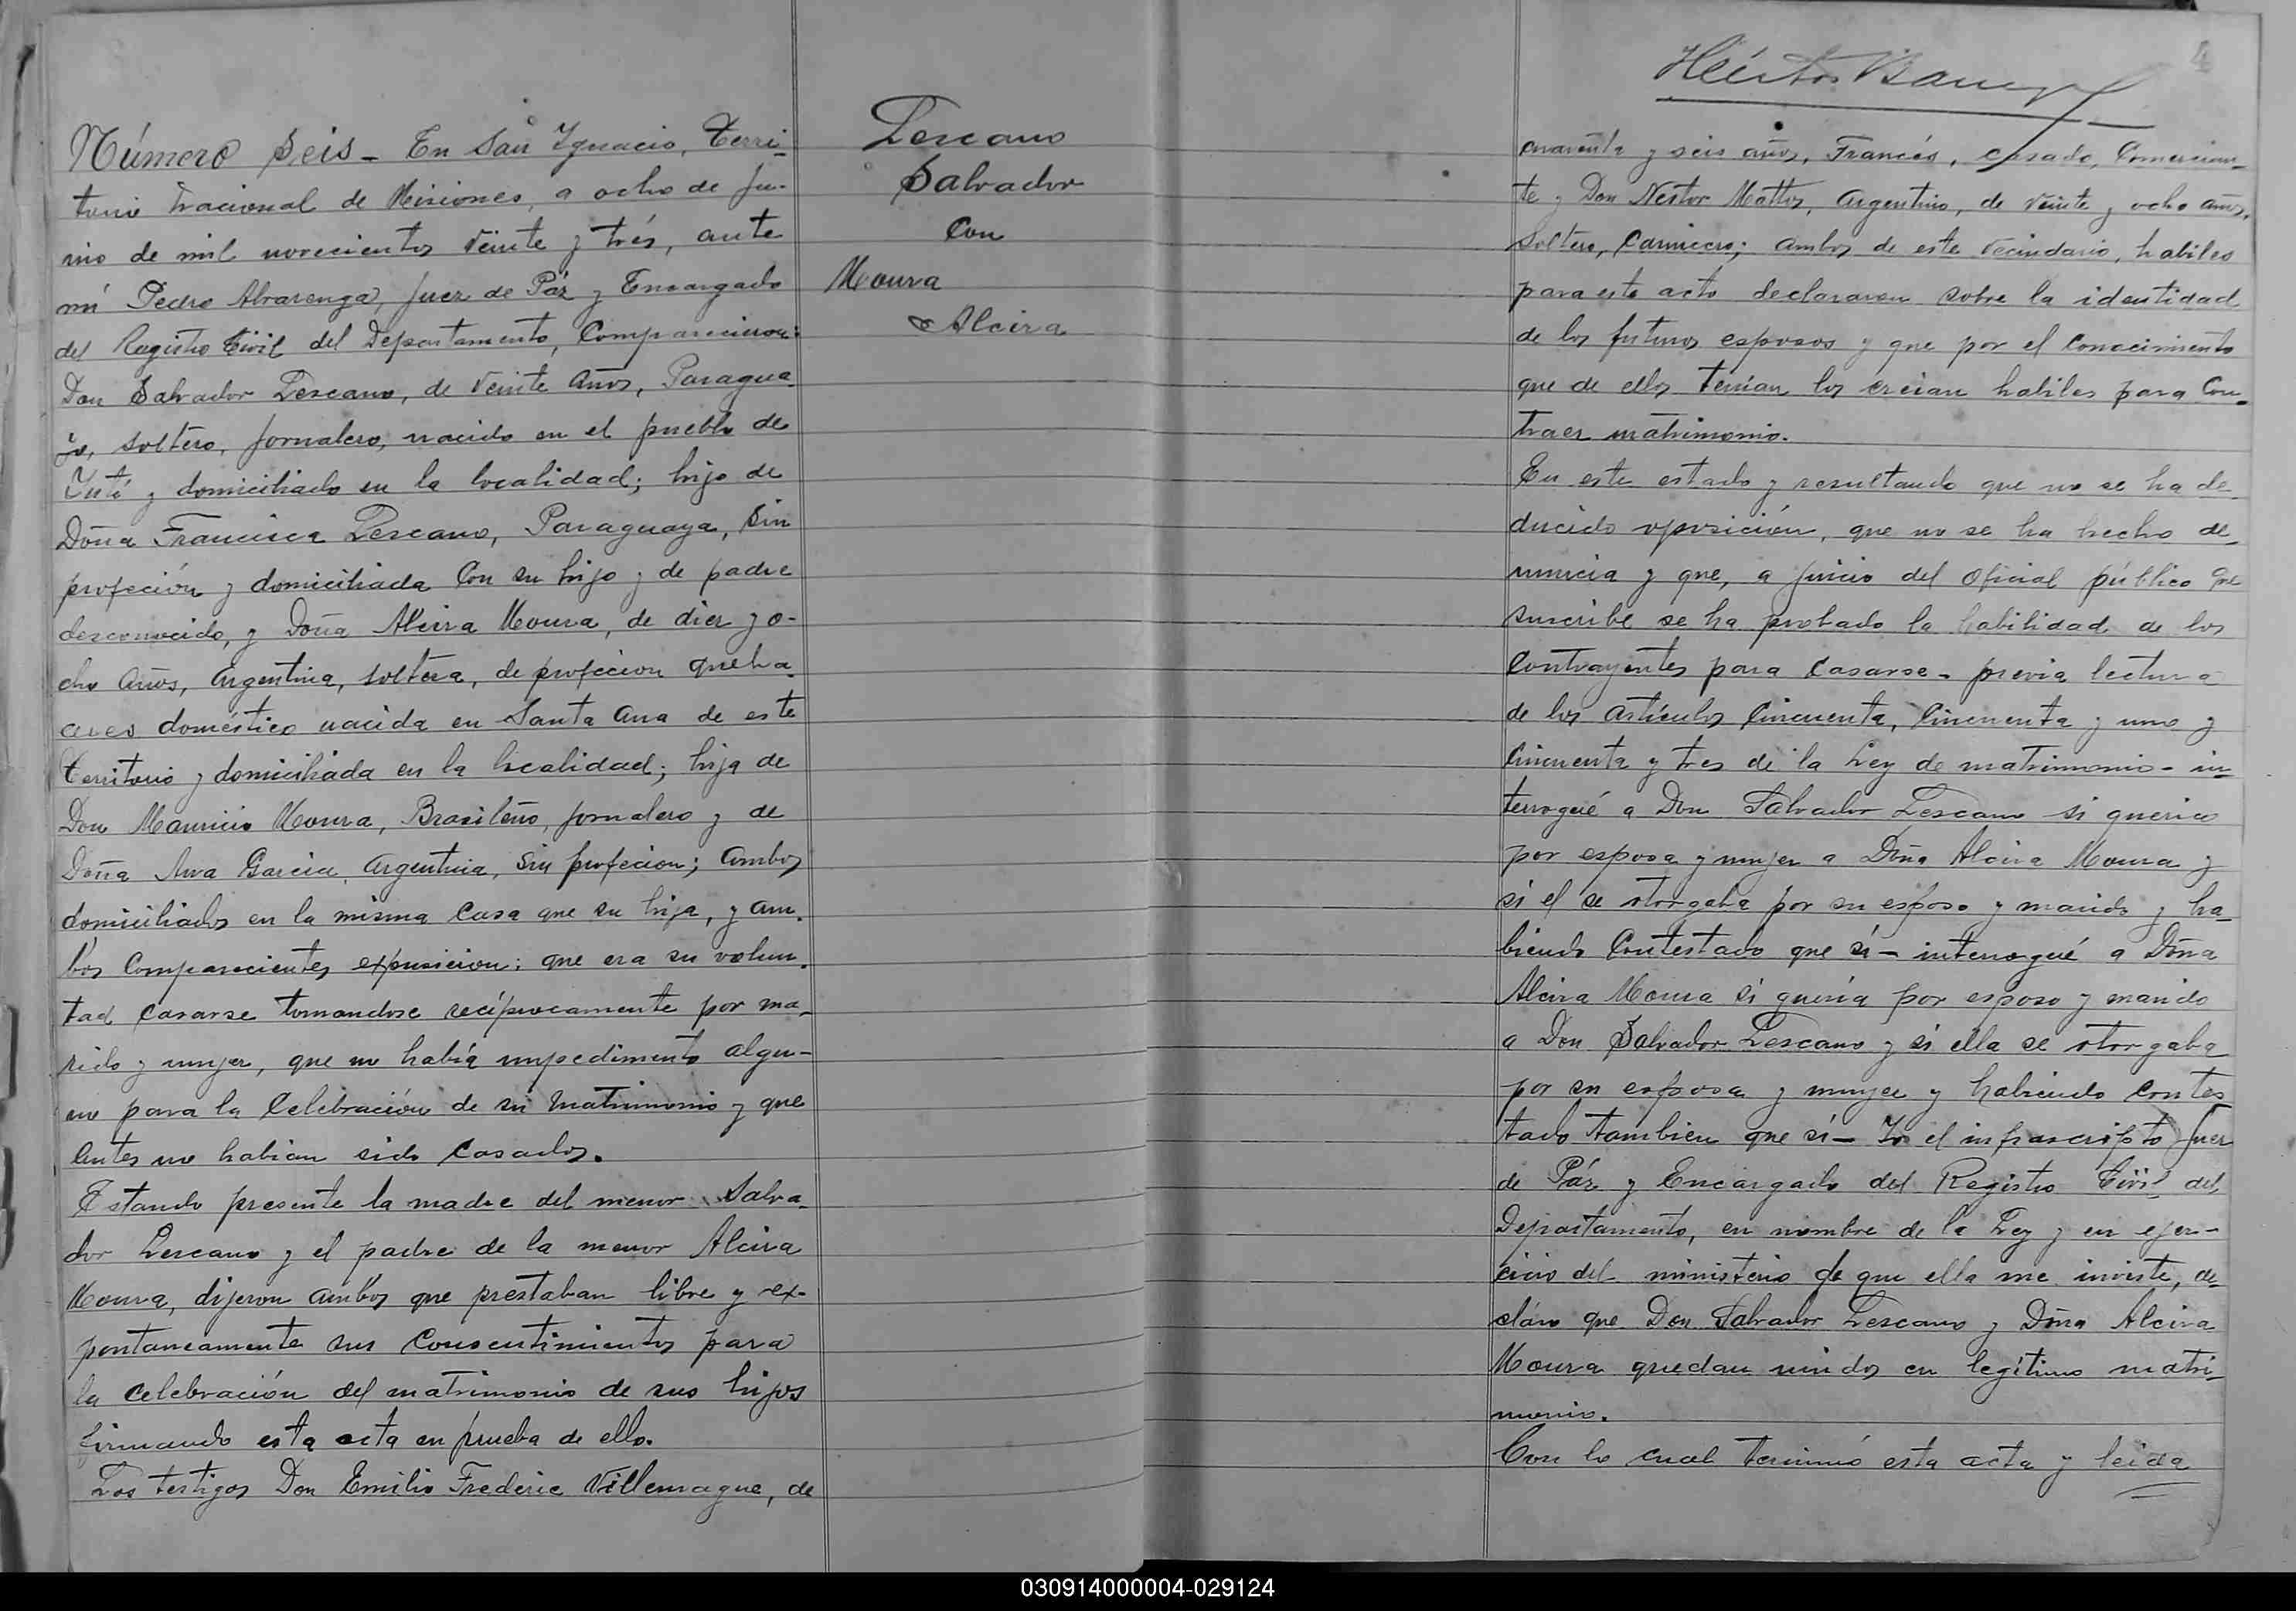 Número Seis - En San Ygnacio, Terri-
torio Nacional de Misiones, a ocho de Ju-
nio de mil novecientos veinte y trés, ante
mi Pedro Alvarenga, Juez de Páz y Encargado
del Registro Civil del Departamento, Comparecieron:
Don Salvador Lescano, de veinte años, Paragua-
yo, soltero, jornalero, nacido en el pueblo de
Yutí y domiciliado en la localidad; hijo de
Doña Francisca Lescano, Paraguaya, Sin
profeción y domiciliada Con su hijo y de padre
desconocido, y Doña Alcira Moura, de diez y o-
cho años, Argentina, soltera, de profecion queha-
ceres doméstico nacida en Santa Ana de este
Territorio y domiciliada en la localidad; hija de
Don Mauricio Moura, Brasileño, jornalero y de
Doña Ana Garcia, Argentina, Sin profecion; Ambos
domiciliados en la misma Casa que su hija, y am-
bos Comparecientes expusieron: que era su volun-
tad Casarse tomandose recíprocamente por ma-
rido y mujer, que no había impedimento algu-
no para la Celebración de su Matrimonio y que
Antes no habian sido Casados.
Estando presente la madre del menor Salva-
dor Lescano y el padre de la menor Alcira
Moura, dijeron Ambos que prestaban libre y ex-
pontaneamente sus Consentimientos para
la Celebración del matrimonio de sus hijos
firmando esta acta en prueba de ello.
Los testigos Don Emilio Frederic Villemague, de
Lescano
Salvador
Con
Moura
Alcira
4
Héctor
cuarenta y seis años, Francés, casado, Comercian-
te y Don Nestor Mattos, Argentino, de veinte y ocho años,
Soltero, Carnicero; Ambos de este Vecindario, habiles
para este acto declararon sobre la identidad
de los futuros esposos y que por el Conocimiento
que de ellos tenían los creian habiles para Con-
traer matrimonio.
En este estado y resultando que no se ha de
ducido oposición, que no se ha hecho de-
nuncia y que, a juicio del Oficial público que
suscribe se ha probado la habilidad de los
Contrayentes para Casarse - previa lectura
de los Artículos Cincuenta, Cincuenta y uno y
Cincuenta y tres de la Ley de matrimonio - in-
terrogué a Don Salvador Lescano si queria
por esposa y mujer a Doña Alcira Moura y
si el se otorgaba por su esposo y marido y ha-
biendo Contestado que sí - interrogué a Doña
Alcira Moura si quería por esposo y marido
a Don Salvador Lescano y si ella se otorgaba
por su esposa y mujer y habiendo Contes
tado tambien que sí - Yo el infrascripto Juez
de Páz y Encargado del Registro Civil del
Departamento, en nombre de la Ley y en ejer-
cicio del ministerio de que ella me inviste, de-
cláro que Don Salvador Lescano y Doña Alcira
Moura quedan unidos en legítimo matri-
monio.
Con lo cual terminó esta acta y leida
030914000004-029124